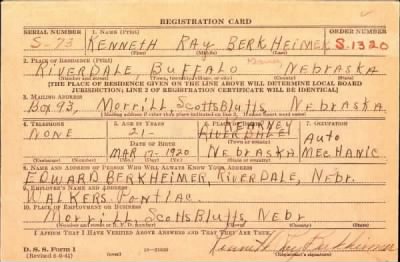 REGISTRATION CARD
SERIAL NUMBER 1. NAME (Print) ORDER NUMBER
S-73 KENNETH RAY BERKHEIMER S.1320
(First) (Middle) (Last)
2. PLACE OF RESIDENCE (Print)
RIVERDALE, BUFFALO NEBRASKA
(Number and street) (Town, township, village, or city) (County) (State)
[THE PLACE OF RESIDENCE GIVEN ON THE LINE ABOVE WILL DETERMINE LOCAL BOARD
JURISDICTION; LINE 2 OF REGISTRATION CERTIFICATE WILL BE IDENTICAL]
3. MAILING ADDRESS
Box 93, Morrill, ScottsBluffs, Nebraska.
[Mailing address if other than place indicated on line 2. If same insert word same]
4. TELEPHONE 5. AGE IN YEARS 6. PLACE OF BIRTH 7. OCCUPATION
NONE 21- KEARNEY
RIVERDALE Auto
DATE OF BIRTH (Town or county)
MAR 17, 1920 Nebraska Mechanic
(Exchange) (Number) (Mo.) (Day) (Yr.) (State or country)
8. NAME AND ADDRESS OF PERSON WHO WILL ALWAYS KNOW YOUR ADDRESS
EDWARD BERKHEIMER, RIVERDALE, NEBR.
9. EMPLOYER'S NAME AND ADDRESS
WALKERS PONTIAC.
10. PLACE OF EMPLOYMENT OR BUSINESS
Morrill, ScottsBluffs, Nebr
(Number and street or R. F. D. number) (Town) (County) (State)
I AFFIRM THAT I HAVE VERIFIED ABOVE ANSWERS AND THAT THEY ARE TRUE.
D. S. S. Form 1
(Revised 6-9-41) (over) Kenneth Ray Berkheimer
(Registrant's signature)